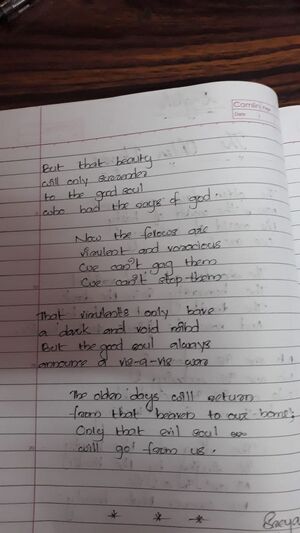 Camlin Page
Date
But that beauty
will only surrender
to the good soul
who had the rays of god.
Now the feloous are
virulent and voracious
we can't gag them
we can't stop them
That virulents only have
a dark and void mind
But the good soul always
announce a vis-a-vis ware
The olden days will return
from that heaven to our home;
Only that evil soul
will go form us.
* * *